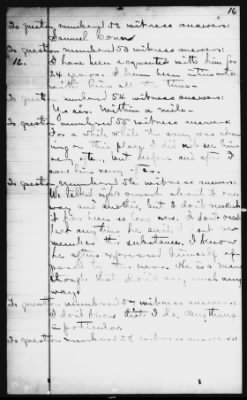 16
To question numbered 52 witness answers
Samuel Conn
To question numbered 53 witness answers:
16. I have been acquainted with him for
24 years. I have been intimate
with him all the time.
To question numbered 54 witness answers:
Yes sir. Within a mile.
To question numbered 55 witness answers
For a while while the army was
on this place I did not see him
very often, but before and after I
saw him very often.
To question numbered 56 witness answers:
We talked right smart about it one
way and another, but I don't recollect
it has been so long now. I don't
anything he said; but
the substance. I know
he often expressed himself
to the war. He is a man
though that don't say much any
way.
To question numbered 57 witness answers
I don't know that I do, anything
in particular.
To question numbered 58 witness answers